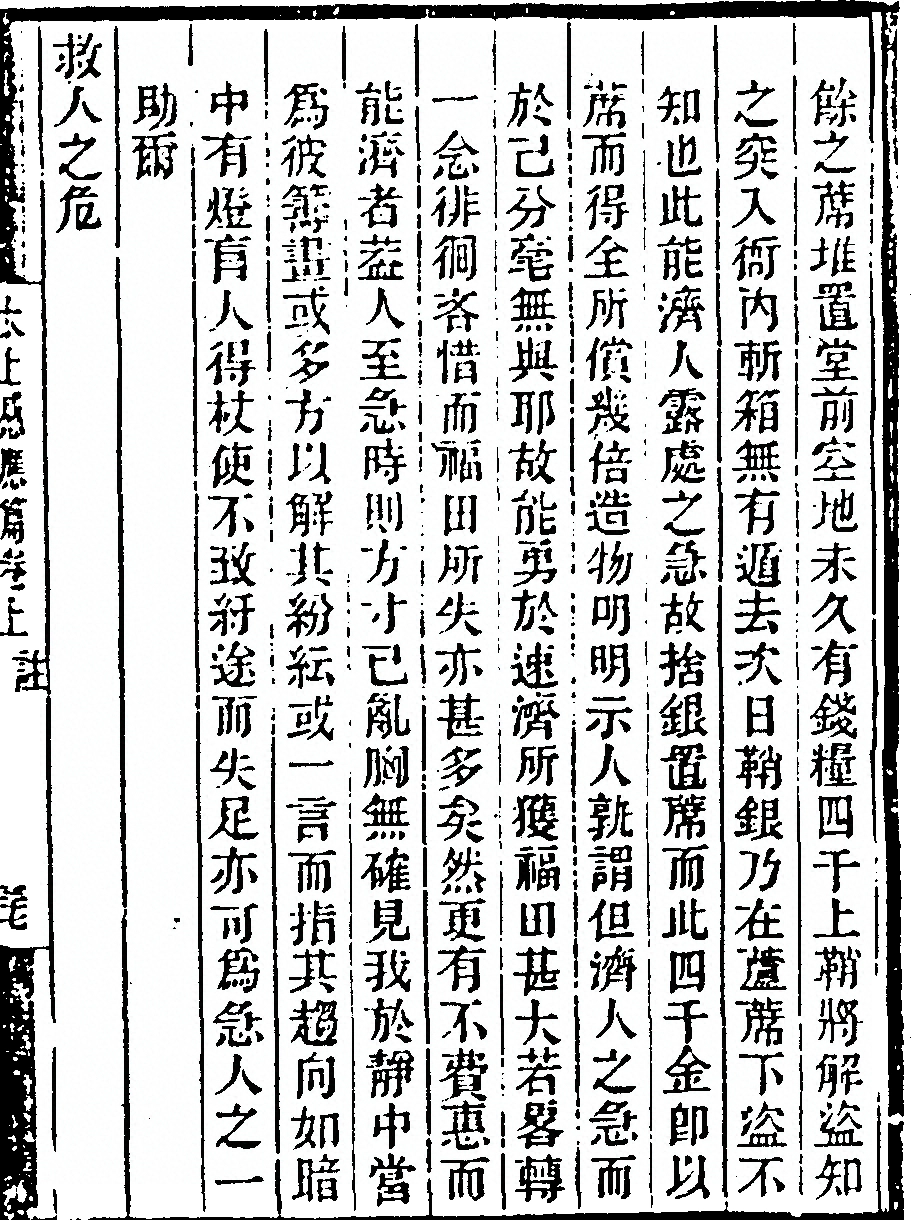 餘之蓆堆置堂前空地未久有錢糧四千上鞘將解盜知
之突入衙內斬箱無有遁去次日鞘銀乃在蘆蓆下盜不
知也此能濟人露處之急故捨銀置蓆而此四千金即以
蓆而得全所償幾倍造物明明示人孰謂但濟人之急而
於己分毫無與耶故能勇於速濟所獲福田甚大若畧轉
一念徘徊吝惜而福田所失亦甚多矣然更有不費惠而
能濟者葢人至急時則方寸已亂胸無確見我於靜中當
為彼籌畫或多方以解其紛紜或一言而指其趨向如暗
中有燈盲人得杖使不致紆途而失足亦可為急人之一
助爾
救人之危
太上感應篇卷上 註